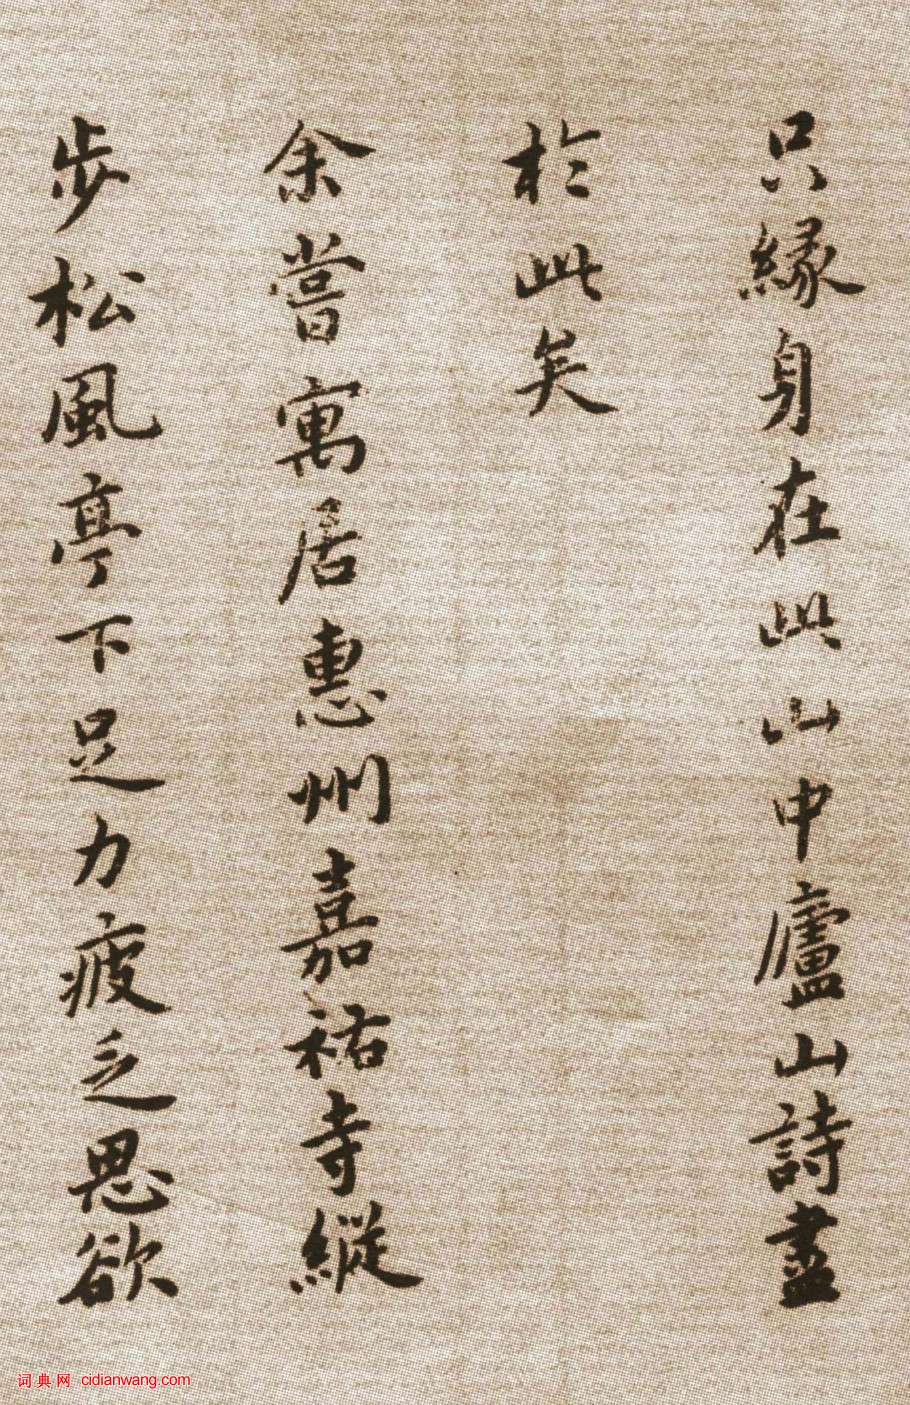 只緣身在此山中廬山詩盡
於此矣
余嘗寓居惠州嘉祐寺縱
步松風亭下足力疲乏思欲
词典网 cidianwang.com